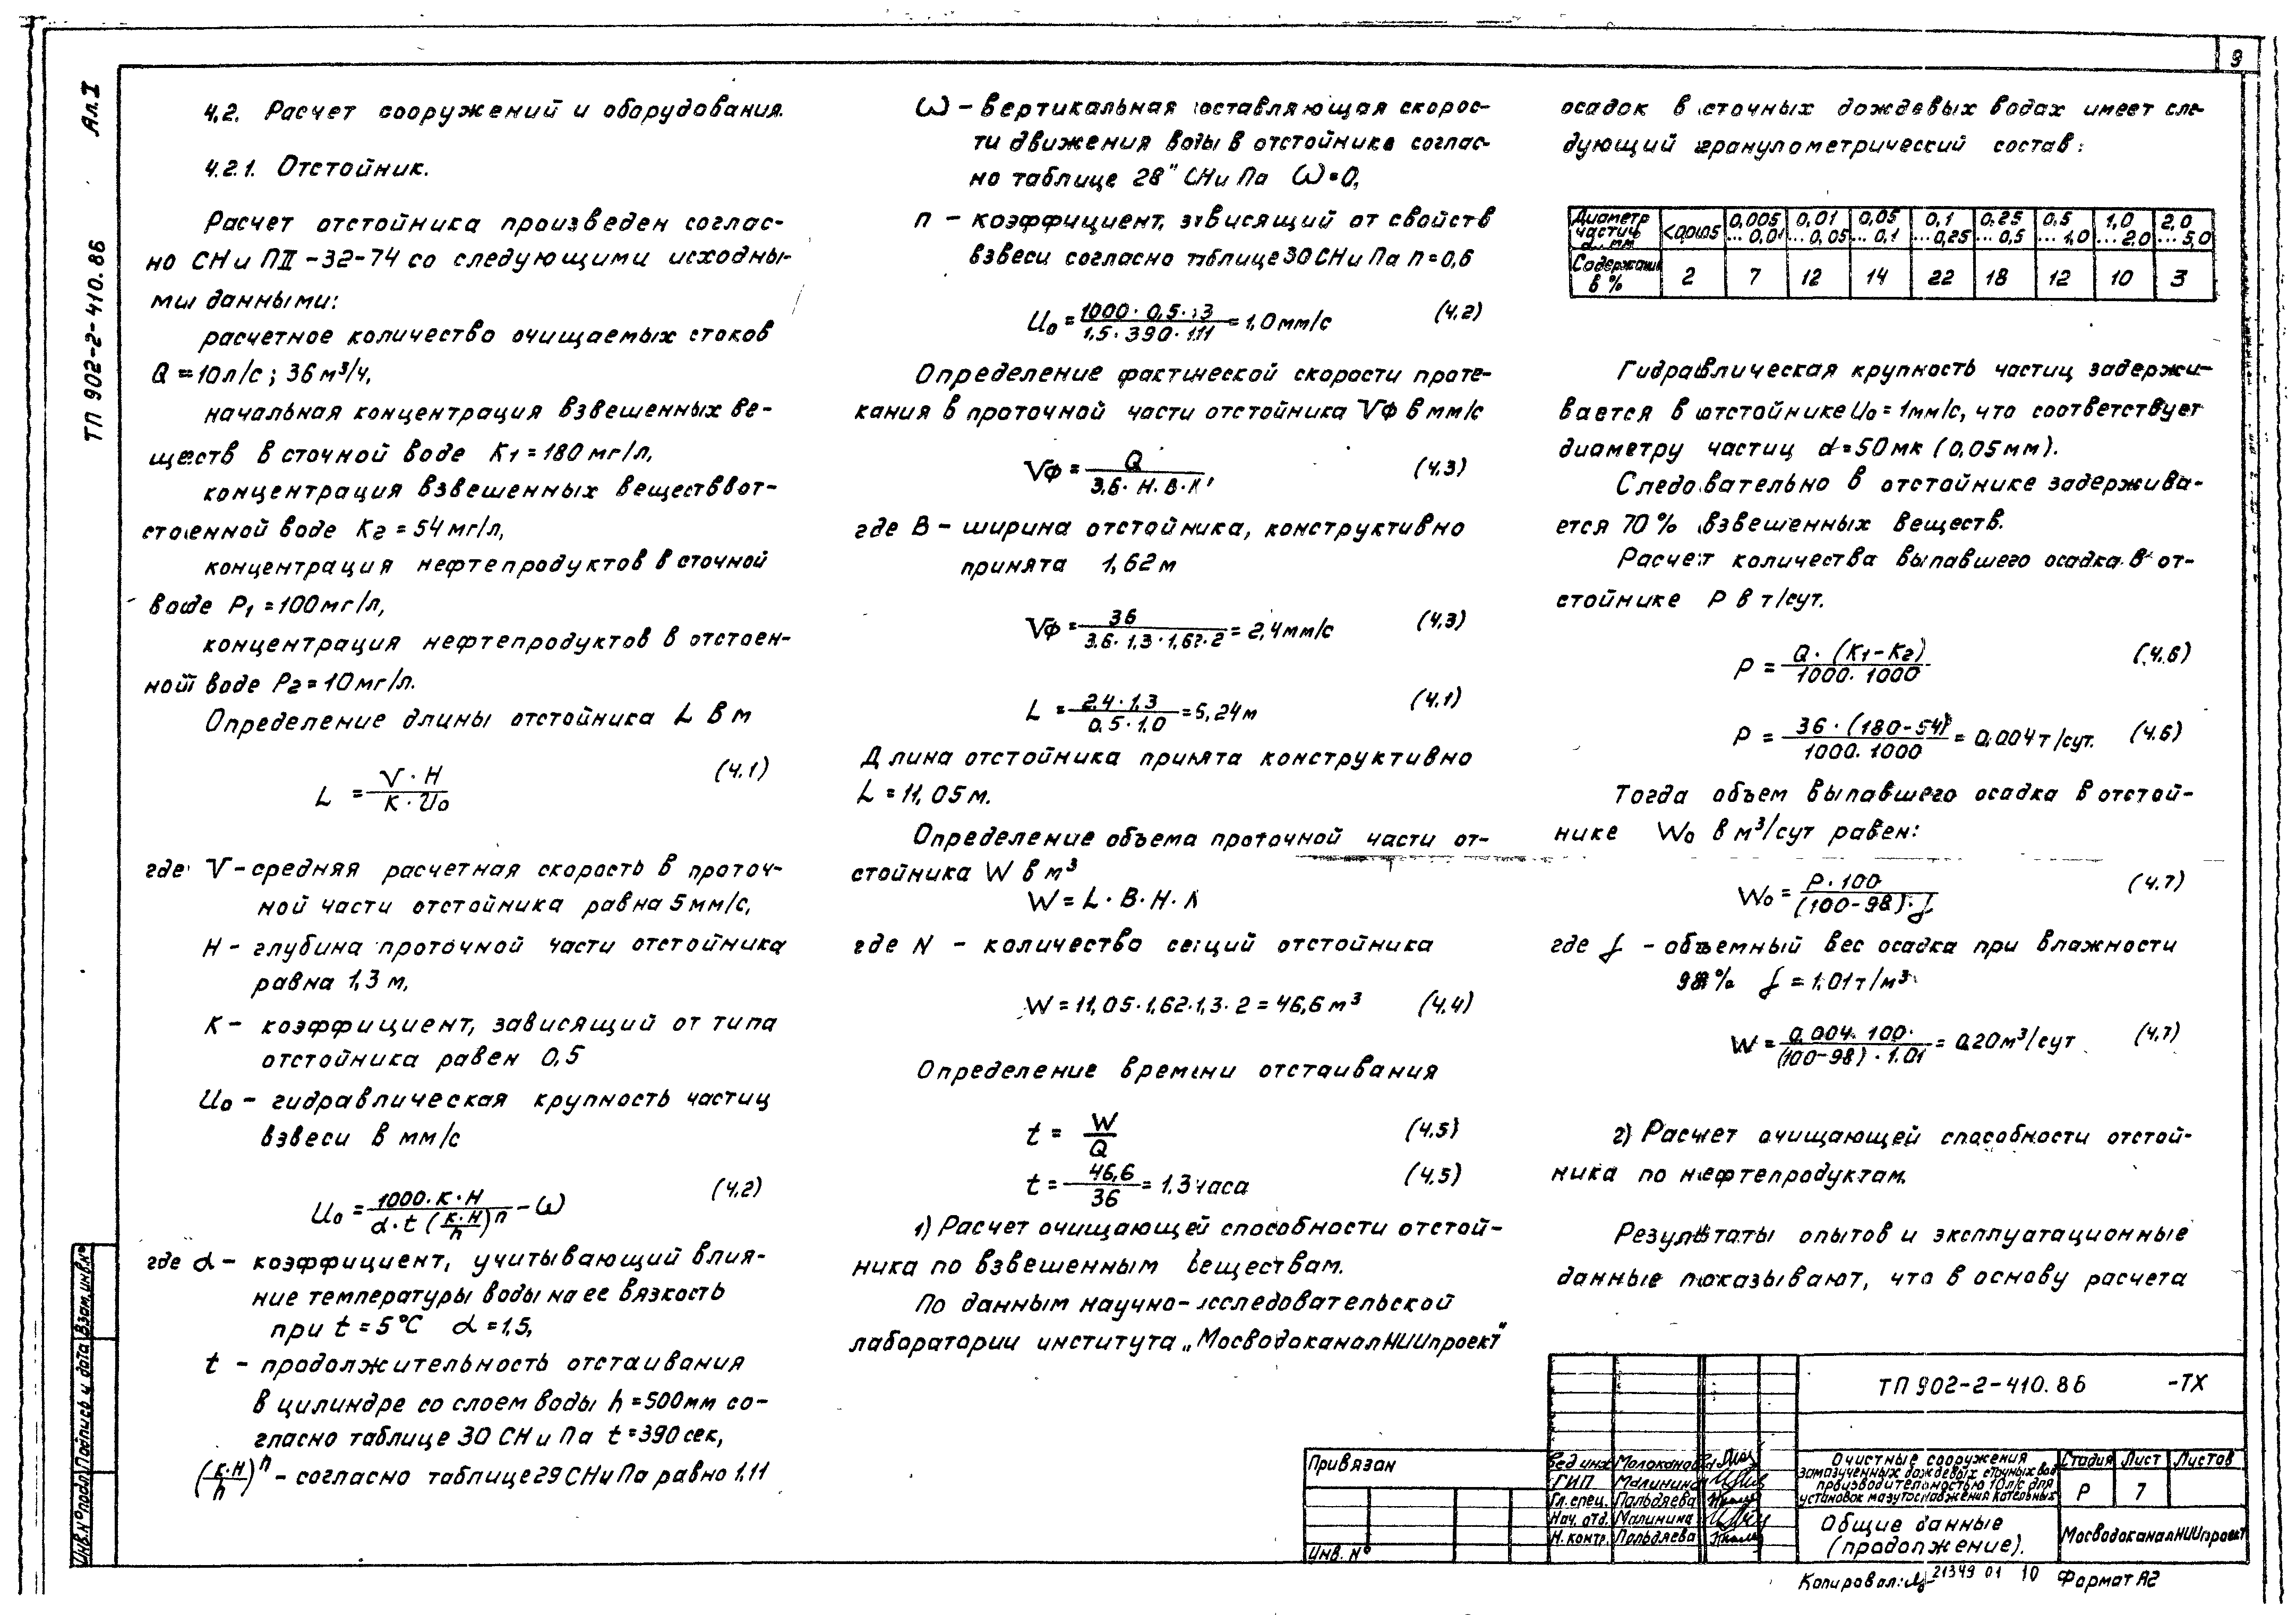 9
Ал.I
ТП 902-2-410.86
4.2. Расчет сооружений и оборудования.
4.2.1. Отстойник.
Расчет отстойника произведен соглас-
но СНиПII-32-74 со следующими исходны-
ми данными:
расчетное количество очищаемых стоков
Q = 10л/с ; 36 м³/ч,
начальная концентрация взвешенных ве-
ществ в сточной воде К1 = 180 мг/л,
концентрация взвешенных веществ в от-
стоенной воде К2 = 54 мг/л,
концентрация нефтепродуктов в сточной
воде Р1 = 100 мг/л,
концентрация нефтепродуктов в отстоен-
ной воде Р2 = 10 мг/л.
Определение длины отстойника L в м
L = V · H / K · U₀ (4.1)
где V - средняя расчетная скорость в проточ-
ной части отстойника равна 5 мм/с,
H - глубина проточной части отстойника
равна 1,3 м,
К - коэффициент, зависящий от типа
отстойника равен 0,5
U₀ - гидравлическая крупность частиц
взвеси в мм/с
U₀ = 1000 · К · Н / α · t (К·Н / h)ⁿ - ω (4.2)
где α - коэффициент, учитывающий влия-
ние температуры воды на ее вязкость
при t = 5°С α = 1,5,
t - продолжительность отстаивания
в цилиндре со слоем воды h = 500мм со-
гласно таблице 30 СНиПа t = 390 сек,
(К·Н / h)ⁿ - согласно таблице 29 СНиПа равно 1.11
ω - вертикальная составляющая скорос-
ти движения воды в отстойнике соглас-
но таблице 28" СНиПа ω = 0,
n - коэффициент, зависящий от свойств
взвеси согласно таблице 30 СНиПа n = 0,6
U₀ = 1000 · 0,5 · 1,3 / 1,5 · 390 · 1.11 = 1,0 мм/с (4.2)
Определение фактической скорости проте-
кания в проточной части отстойника Vф в мм/с
Vф = Q / 3,6 · Н · В · N, (4.3)
где В - ширина отстойника, конструктивно
принята 1,62 м
Vф = 36 / 3.6 · 1,3 · 1,62 · 2 = 2,4 мм/с (4.3)
L = 2,4 · 1,3 / 0,5 · 1,0 = 6,24 м (4.1)
Длина отстойника принята конструктивно
L = 11,05 м.
Определение объема проточной части от-
стойника W в м³
W = L · B · H · N
где N - количество секций отстойника
W = 11,05 · 1,62 · 1,3 · 2 = 46,6 м³ (4.4)
Определение времени отстаивания
t = W / Q (4.5)
t = 46,6 / 36 = 1.3 часа (4.5)
1) Расчет очищающей способности отстой-
ника по взвешенным веществам.
По данным научно-исследовательской
лаборатории института „МосводоканалНИИпроект"
осадок в сточных дождевых водах имеет сле-
дующий гранулометрический состав:
Диаметр частиц d, мм <0,005 0,005 ... 0,01 0,01 ... 0,05 0,05 ... 0,1 0,1 ... 0,25 0,25 ... 0,5 0,5 ... 1,0 1,0 ... 2,0 2,0 ... 5,0
Содержание в % 2 7 12 14 22 18 12 10 3
Гидравлическая крупность частиц задержи-
вается в отстойнике U₀ = 1мм/с, что соответствует
диаметру частиц d = 50 мк (0,05 мм).
Следовательно в отстойнике задержива-
ется 70% взвешенных веществ.
Расчет количества выпавшего осадка в от-
стойнике Р в т/сут.
P = Q · (К1 - К2) / 1000 · 1000 (4.6)
P = 36 · (180 - 54) / 1000 · 1000 = 0,004 т/сут. (4.6)
Тогда объем выпавшего осадка в отстой-
нике W₀ в м³/сут равен:
W₀ = P · 100 / (100 - 98) · f (4.7)
где f - объемный вес осадка при влажности
98% f = 1.01 т/м³
W = 0,004 · 100 / (100-98) · 1.01 = 0,20 м³/сут (4.7)
2) Расчет очищающей способности отстой-
ника по нефтепродуктам.
Результаты опытов и эксплуатационные
данные показывают, что в основу расчета
Инв. № подл. Подпись и дата Взам. инв. №
Привязан
Инв. №
Вед. инж. Молоканова
ГИП Малинина
Гл. спец. Пальдяева
Нач. отд. Малинина
Н. контр. Пальдяева
ТП 902-2-410.86 -ТХ
Очистные сооружения
замазученных дождевых сточных вод
производительностью 10 л/с для
установок мазутоснабжения котельных
Стадия Лист Листов
Р 7
Общие данные
(продолжение).
МосводоканалНИИпроект
Копировал: 21349 01 10 Формат А2